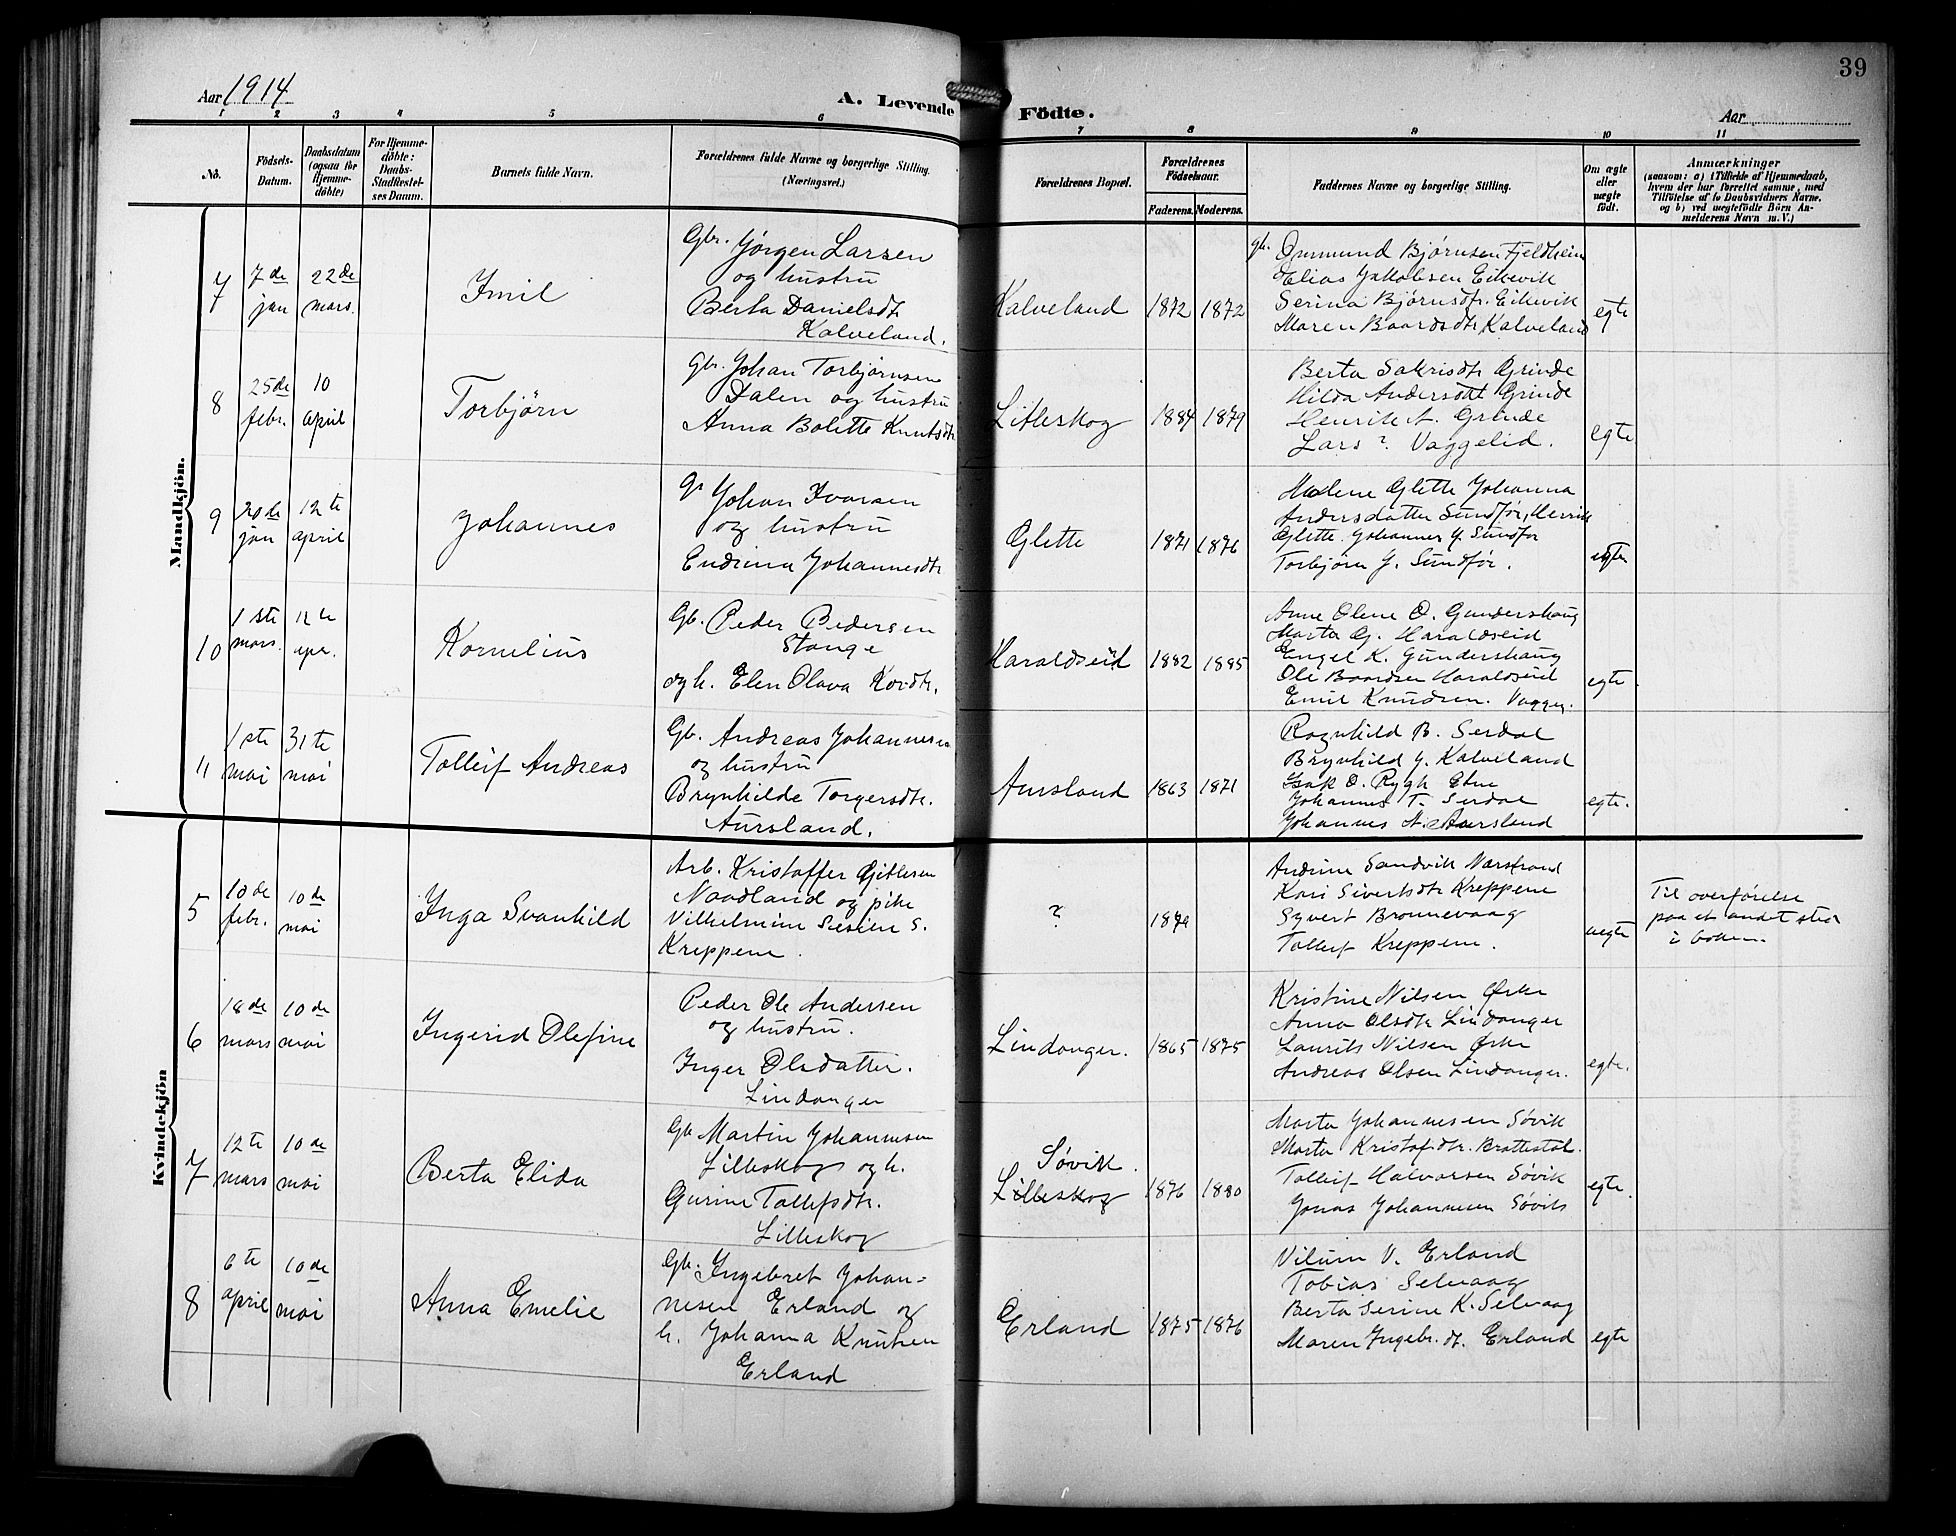 39
Aar 1914
A. Levende
Födte.
Aar
1 2 3 4 5 6 7 8 9 10 11
No.
Födsels-
Datum.
Daabsdatum
(ogsaa for
Hjemme-
döbte)
For Hjemme-
döbte:
Daabs-
Stadfæstel-
ses Datum.
Barnets fulde Navn.
Forældrenes fulde Navne og borgerlige Stilling.
(Næringsvei.)
Forældrenes Bopæl.
Forældrenes
Födselsaar.
Faderens. Moderens.
Faddernes Navne og borgerlige Stilling.
Om ægte
eller
uægte
födt.
Anmærkninger
(saasom: a) i Tilfælde af Hjemmedaab,
hvem der har forrettet samme, med
Tilföielse af to Daabsvidners Navne,
og b) ved uægtefödte Börn An-
melderens Navn m. V.)
Mandkjön.
7
7de
jan
22de
mars.
Imil
Gbr. Jørgen Larsen
og hustru
Berta Danielsdt.
Kalveland.
Kalveland
1872
1872
gb. Onmund Bjørnsen Fjeldheim
Elias Jakobsen Eikevik
Serina Bjørnsdtr. Eikevik
Maren Baardsdtr Kalveland
egte
8
25de
febr.
10
april
Torbjørn
Gbr. Johan Torbjørnsen
Dalen og hustru
Anna Bolette Knutsdtr
Litleskog
1884
1879
Berta Sakrisdtr Grinde
Hilda Andersdtt Grinde
Henrik A. Grinde
Lars ? Vaggelid.
egte
9
20de
jan
12te
april
Johannes
G. Johan Ivarsen
og hustru
Endrina Johannesdtr
Glette
1871
1876
Malene Glette Johanna
Andersdatter Sundfør, Henrik
Glette. Johannes J. Sundfør
Torbjørn J. Sundfør.
egte
10
1ste
mars.
12te
apr.
Kornelius
Gb. Peder Pedersen
Stange
og h. Elen Olava
Haraldseid
1882
1885
Anne Olene O. Gundershaug
Marta G. Haraldseid
Engel K. Gundershaug
Ole Baardsen Haraldseid
Emil Knudsen.
egte
11
1ste
mai
31te
mai
Tolleif Andreas
Gb. Andreas Johannesen
og hustru
Brynhilde Torgersdtr.
Aursland.
Aursland
1863
1871
Ragnhild B. Serdal
Brynhild J. Kalveland
Isak O. Rygh Etne
Johannes T. Serdal
Johannes A. Aursland
egte.
Kvindekjön
5
10de
febr.
10de
mai
Inga Svanhild
Arb. Kristoffer Gjitlesen
Naadland og pike
Vilhelmine S.
Kreppene.
?
1874
Andrine Sandvik Nærstrand
Kari Sivertsdtr Kreppene
Syvert Bronnevaag
Tolleif Kreppene.
uegte
Til overførelse
paa et andet sted
i boken.
6
18de
mars
10de
mai
Ingerid Olefine
Peder Ole Andersen
og hustru.
Inger Olsdatter.
Lindanger
Lindanger.
1865
1875
Kristine Nilsen Ørke
Anna Olsdtr Lindanger
Laurits Nilsen Ørke
Andreas Olsen Lindanger.
egte.
7
12te
mars
10de
mai
Berta Elida
Gb. Martin Johannesen
Lilleskog og h.
Gurine Tollefsdtr.
Lilleskog
Søvik.
Lilleskog
1876
1880
Marta Johannesen Søvik
Marta Kristofdtr. Brattestøl.
Tolleif Halvorsen Søvik
Jonas Johannesen Søvik
egte.
8
6te
april
10de
mai
Anna Emelie
Gb. Ingebret Johan-
nesen Erland og
h. Johanna Knutsen
Erland
Erland
1875
1876
Vilum V. Erland
Tobias Selvaag
Berta Serine K. Selvaag
Maren Ingebr. dt. Erland
egte